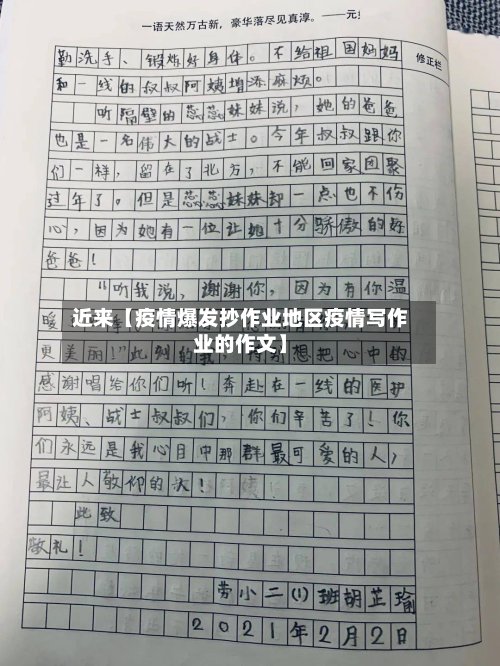 一语天然万古新，豪华落尽见真淳。——元
修正栏
勤洗手、锻炼好身体。不给祖国妈妈
和一线的叔叔阿姨增添麻烦。
听隔壁的蕊蕊妹妹说，她的爸爸
也是一名伟大的战士。今年叔叔跟你
们一样，留在了北方，不能回家团聚
过年了。但是蕊蕊妹妹却一点也不伤
心，因为她有一位让她十分骄傲的好
爸爸！
“听我说，谢谢你，因为有你温
暖
近来【疫情爆发抄作业地区疫情写作
业的作文】
更美丽！”此刻的我 想把心中的
感谢唱给你们听！奔赴在一线的医护
阿姨、战士叔叔们，你们辛苦了！你
们永远是我心目中那群最可爱的人，
最让人敬仰的人！
此致
敬礼！
劳小二(1)班胡芷瑜
2021年2月2日